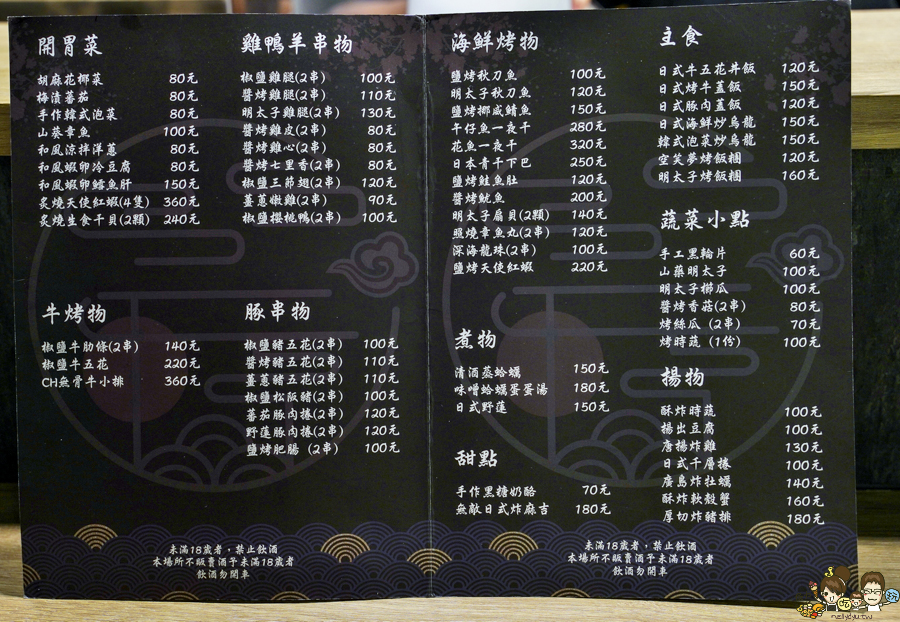 開胃菜
胡麻花椰菜 80元
梅漬蕃茄 80元
手作韓式泡菜 80元
山葵章魚 100元
和風涼拌洋蔥 80元
和風蝦卵冷豆腐 80元
和風蝦卵鱈魚肝 150元
炙燒天使紅蝦(4隻) 360元
炙燒生食干貝(2顆) 240元
牛烤物
椒鹽牛肋條(2串) 140元
椒鹽牛五花 220元
CH無骨牛小排 360元
雞鴨羊串物
椒鹽雞腿(2串) 100元
醬烤雞腿(2串) 110元
明太子雞腿(2串) 130元
醬烤雞皮(2串) 80元
醬烤雞心(2串) 80元
醬烤七里香(2串) 80元
椒鹽三節翅(2串) 120元
蔥蔥嫩雞(2串) 90元
椒鹽櫻桃鴨(2串) 100元
豚串物
椒鹽豬五花(2串) 100元
醬烤豬五花(2串) 110元
蔥蔥豬五花(2串) 110元
椒鹽松阪豬(2串) 100元
蕃茄豚肉捲(2串) 120元
野蓮豚肉捲(2串) 120元
鹽烤肥腸 (2串) 100元
未滿18歲者，禁止飲酒
本場所不販賣酒予未滿18歲者
飲酒勿開車
海鮮烤物
鹽烤秋刀魚 100元
明太子秋刀魚 120元
鹽烤挪威鯖魚 150元
午仔魚一夜干 280元
花魚一夜干 320元
日本青干下巴 250元
鹽烤鮭魚肚 120元
醬烤魷魚 200元
明太子扇貝(2顆) 140元
照燒章魚丸(2串) 120元
深海龍珠(2串) 100元
鹽烤天使紅蝦 220元
煮物
清酒蒸蛤蠣 150元
味噌蛤蠣蛋蛋湯 180元
日式野蓮 150元
甜點
手作黑糖奶酪 70元
無敵日式炸麻吉 180元
主食
日式牛五花丼飯 120元
日式烤牛蓋飯 150元
日式豚肉蓋飯 120元
日式海鮮炒烏龍 150元
韓式泡菜炒烏龍 150元
空笑夢烤飯糰 120元
明太子烤飯糰 160元
蔬菜小點
手工黑輪片 60元
山藥明太子 100元
明太子櫛瓜 100元
醬烤香菇(2串) 80元
烤絲瓜 (2串) 70元
烤時蔬 (1份) 100元
揚物
酥炸時蔬 100元
揚出豆腐 100元
唐揚炸雞 130元
日式千層捲 100元
廣島炸牡蠣 140元
酥炸軟殼蟹 160元
厚切炸豬排 180元
未滿18歲者，禁止飲酒
本場所不販賣酒予未滿18歲者
飲酒勿開車
nellydyu.tw